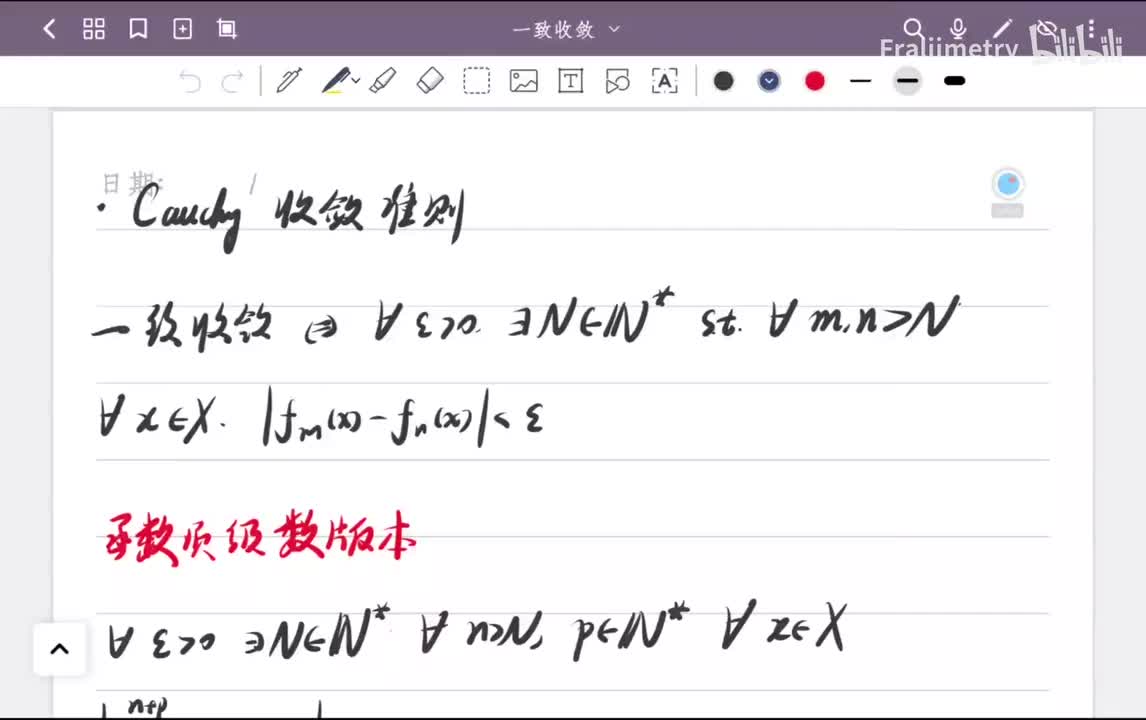 一致收敛
Fraliimetry bilibili
日期: /
· Cauchy 收敛准则
一致收敛 ⇔ ∀ ε>0. ∃N∈ℕ* st. ∀ m,n>N
∀ x∈X. |fₘ(x)-fₙ(x)|<ε
函数项级数版本
∀ ε>0 ∃N∈ℕ* ∀ n>N, p∈ℕ* ∀ x∈X
n+p